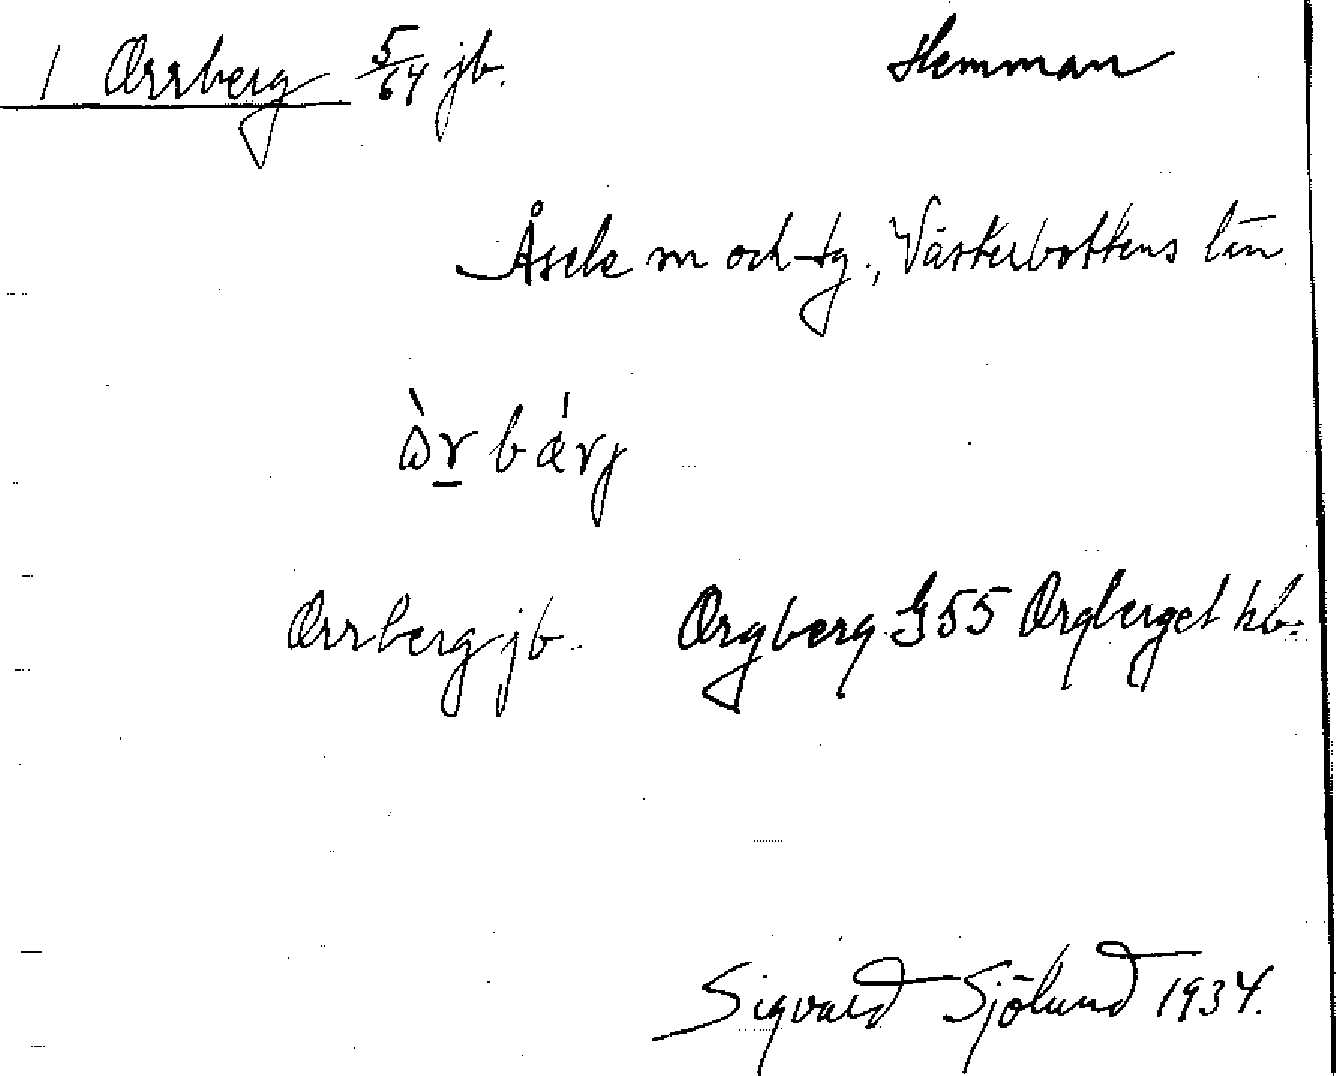 1 Orrberg 5/64 jb. Hemman
Åsele sn och tg., Västerbottens län
ὼr̲ bárg
Orrberg jb. Orgberg G55 Orgberget kb.
Sigvard Sjölund 1934.